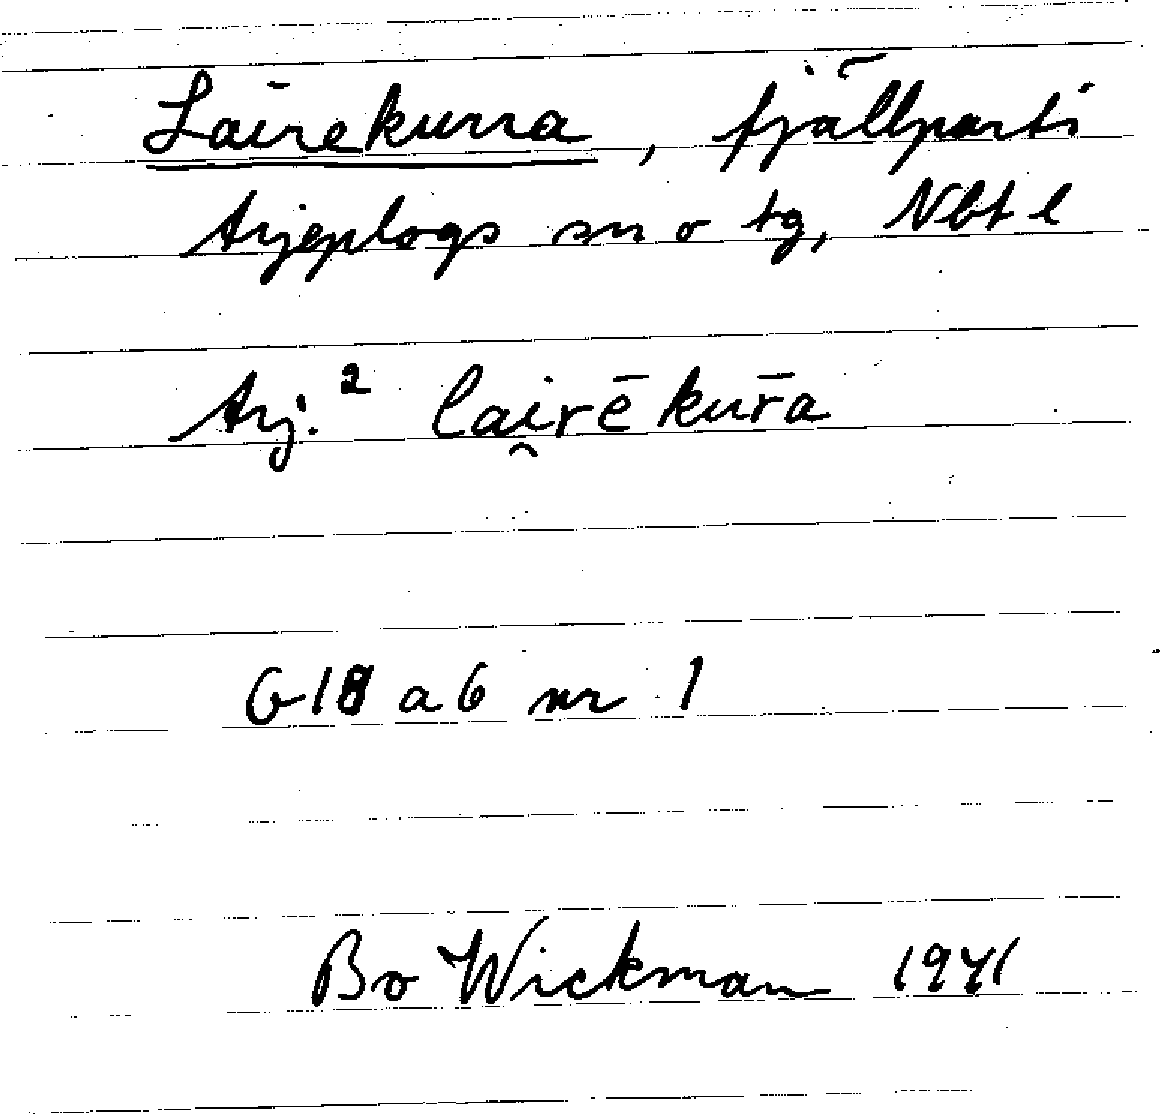 Lairekurra, fjällparti
Arjeplogs sn o tg, Nbt l
Arj.² lai̯rēkur̄a
G 18 a 6 nr 1
Bo Wickman 1941